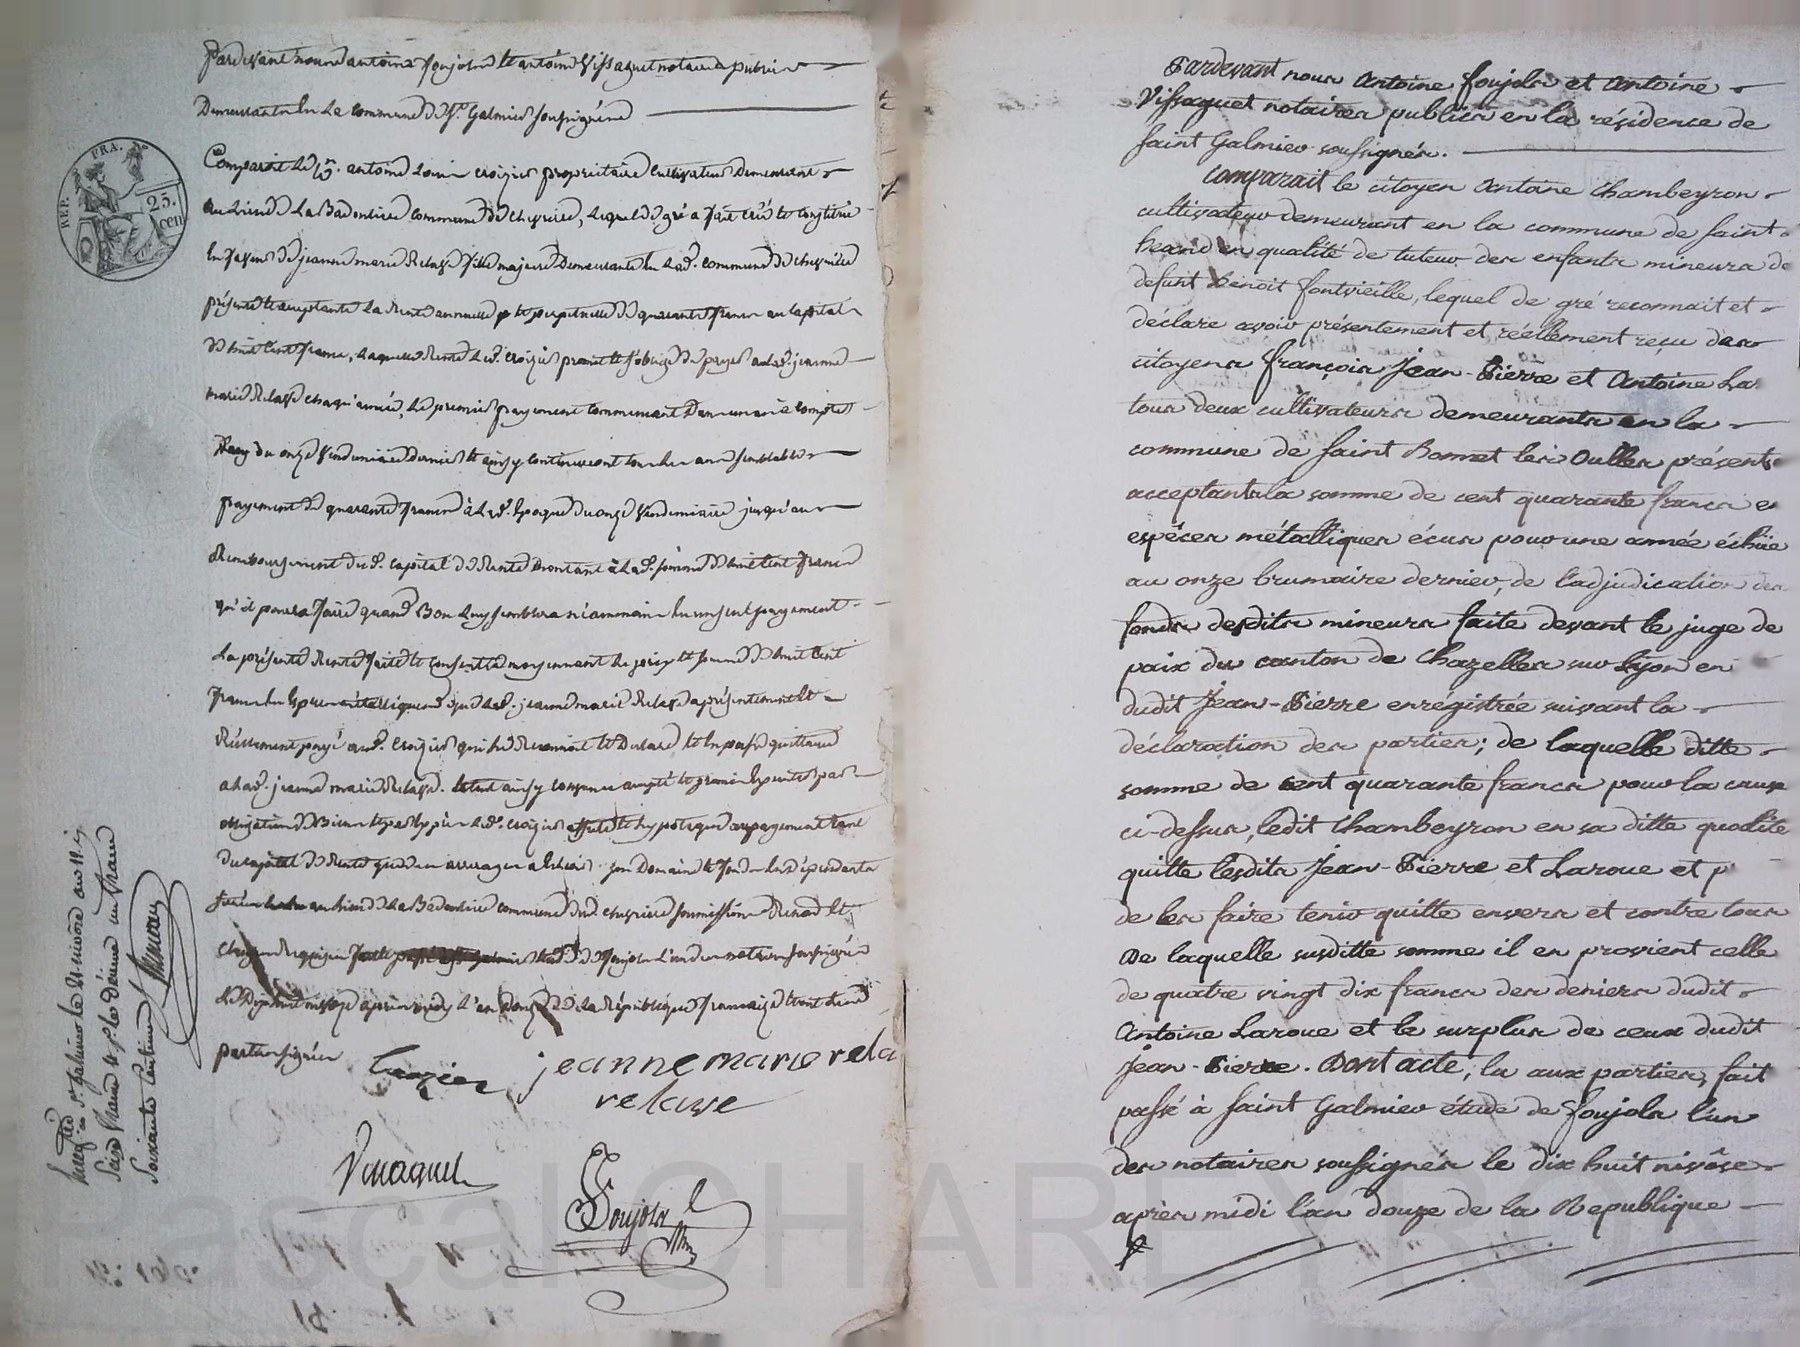 Pardevant nous antoine Foujols et antoine Vissaguet notaires publics
Demeurants en la commune de St. Galmier soussignés
REP. FRA.
25. cen
Comparait le cen. antoine Louis crozier propriétaire cultivateur Demeurant
au lieu de La Badouliere commune de chevrieres, lequel de gré a fait créé et constitué
en faveur de jeanne marie Relave fille majeure Demeurante en lad. commune de chevrieres
présente et acceptante La Rente annuelle et perpetuelle de quarante francs au capital
de huit cent francs, Laquelle Rente led. crozier promet et s'oblige de payer a lad. jeanne
marie Relave chaqu'année, Le premier payement commencant D'un an à compter
du onze vendemiaire dernier et ainsy continueront tous les ans semblable
payement de quarante francs à lad. époque du onze vendemiaire jusqu'au
Remboursement dud. capital de Rente montant à lad. somme de huit cent francs
qu'il pourra faire quand Bon Luy semblera néanmoins en un seul payement
La présente Rente faite et consentie moyennant le prix et somme de huit cent
francs en especes métalliques que lad. jeanne marie Relave a présentement et
Réellement payé aud. crozier qui le Reconnait et Declare et en passe quittance
a lad. jeanne marie Relave. le tout ainsy convenu accepté et promis executer par
obligation de Biens et par exprès led. crozier affecte et hypotheque au payement tant
du capital de Rente que des arrerages a échoir son Domaine et fonds en dépendants
situés au lieu de La Badouliere commune dud. chevrieres soumissions Renon. et
clauses Requises fait et passé étude de Foujols L'un des notaires soussignés
le Dix huit nivose après midy L'an Douze de la République francaise et ont lesd.
parties signées
Crozier jeanne marie rela
relave
Vissaguet
Foujols
Enreg. à St. Galmier le nivose an 12
Soixante centimes
Pardevant nous Antoine Foujols et Antoine
Vissaguet notaires publics en la résidence de
Saint Galmier soussignés.
Comparait le citoyen Antoine Chambeyron
cultivateur demeurant en la commune de Saint
heand en qualité de tuteur des enfants mineurs de
defunt Benoit Fontvieille, lequel de gré reconnait et
déclare avoir présentement et réellement reçu des
citoyens françois Jean-Pierre et Antoine La
tous deux cultivateurs demeurants en la
commune de Saint Bonnet les Oulles présents
acceptants la somme de cent quarante francs en
espéces métalliques écus pour une année échüe
au onze brumaire dernier, de l'adjudication des
fonds desdits mineurs faite devant le juge de
paix du canton de Chazelles sur Lyon en
dudit Jean-Pierre enrégistrée suivant la
déclaration des parties; de laquelle ditte
somme de cent quarante francs pour la cause
ci-dessus, ledit Chambeyron en sa ditte qualité
quitte lesdits Jean-Pierre et Laroue et p
de les faire tenir quitte envers et contre tous
De laquelle susditte somme il en provient celle
de quatre vingt dix francs des deniers dudit
Antoine Laroue et le surplus de ceux dudit
Jean-Pierre. Dont acte, lu aux parties, fait
passé à Saint Galmier étude de Foujols l'un
des notaires soussignés le dix huit nivôse
après midi l'an douze de la Republique
Pascal CHAREYRON